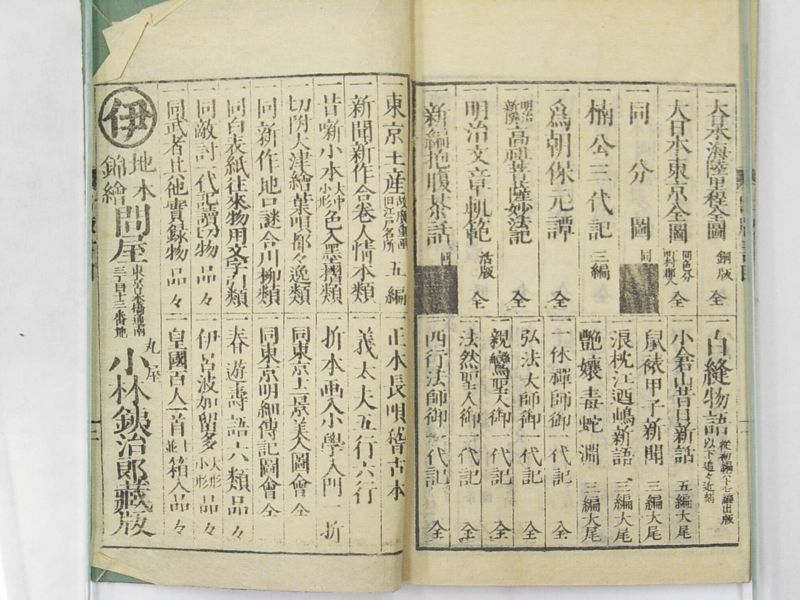 大日本海陸里程全圖 銅版
大日本東京全圖 全
同分圖 同
楠公三代記 三編
爲朝保元譚 全
明治新撰 高祖日蓮妙法記 全
明治文章軌範 活版 全
新編抱腹茶話
白縫物語
小倉山昔日新話 五編大尾
鼠裱甲子新聞 三編大尾
浪枕江迺嶋新語 三編大尾
艶孃毒蛇淵 三編大尾
一休禪師御一代記 全
弘法大師御一代記 全
親鸞聖人御一代記 全
法然聖人御一代記 全
西行法師御一代記 全
東京土産 五編
一新聞新作合巻人情本類
一昔噺小本 大中小形 色入墨摺類
一切附大津繪葉唄都々逸類
一同新作地口謎合川柳類
一同白表紙往来物用文字引類
一同敵討一代記讀切物 品々
一同武者其他實録物 品々
一正本長唄稽古本
一義太夫五行六行
一折本画入小學入門 一折
一同東京十二景美人圖會 全
一同東京明細傳記圖會 全
一春遊壽語六類 品々
一伊呂波加留多 大形 小形 品々
一皇國百人一首 並上 箱入 品々
伊
地本
錦繪
問屋
東京日本橋通南
三丁目十三番地
丸屋
小林鉄治郎藏版